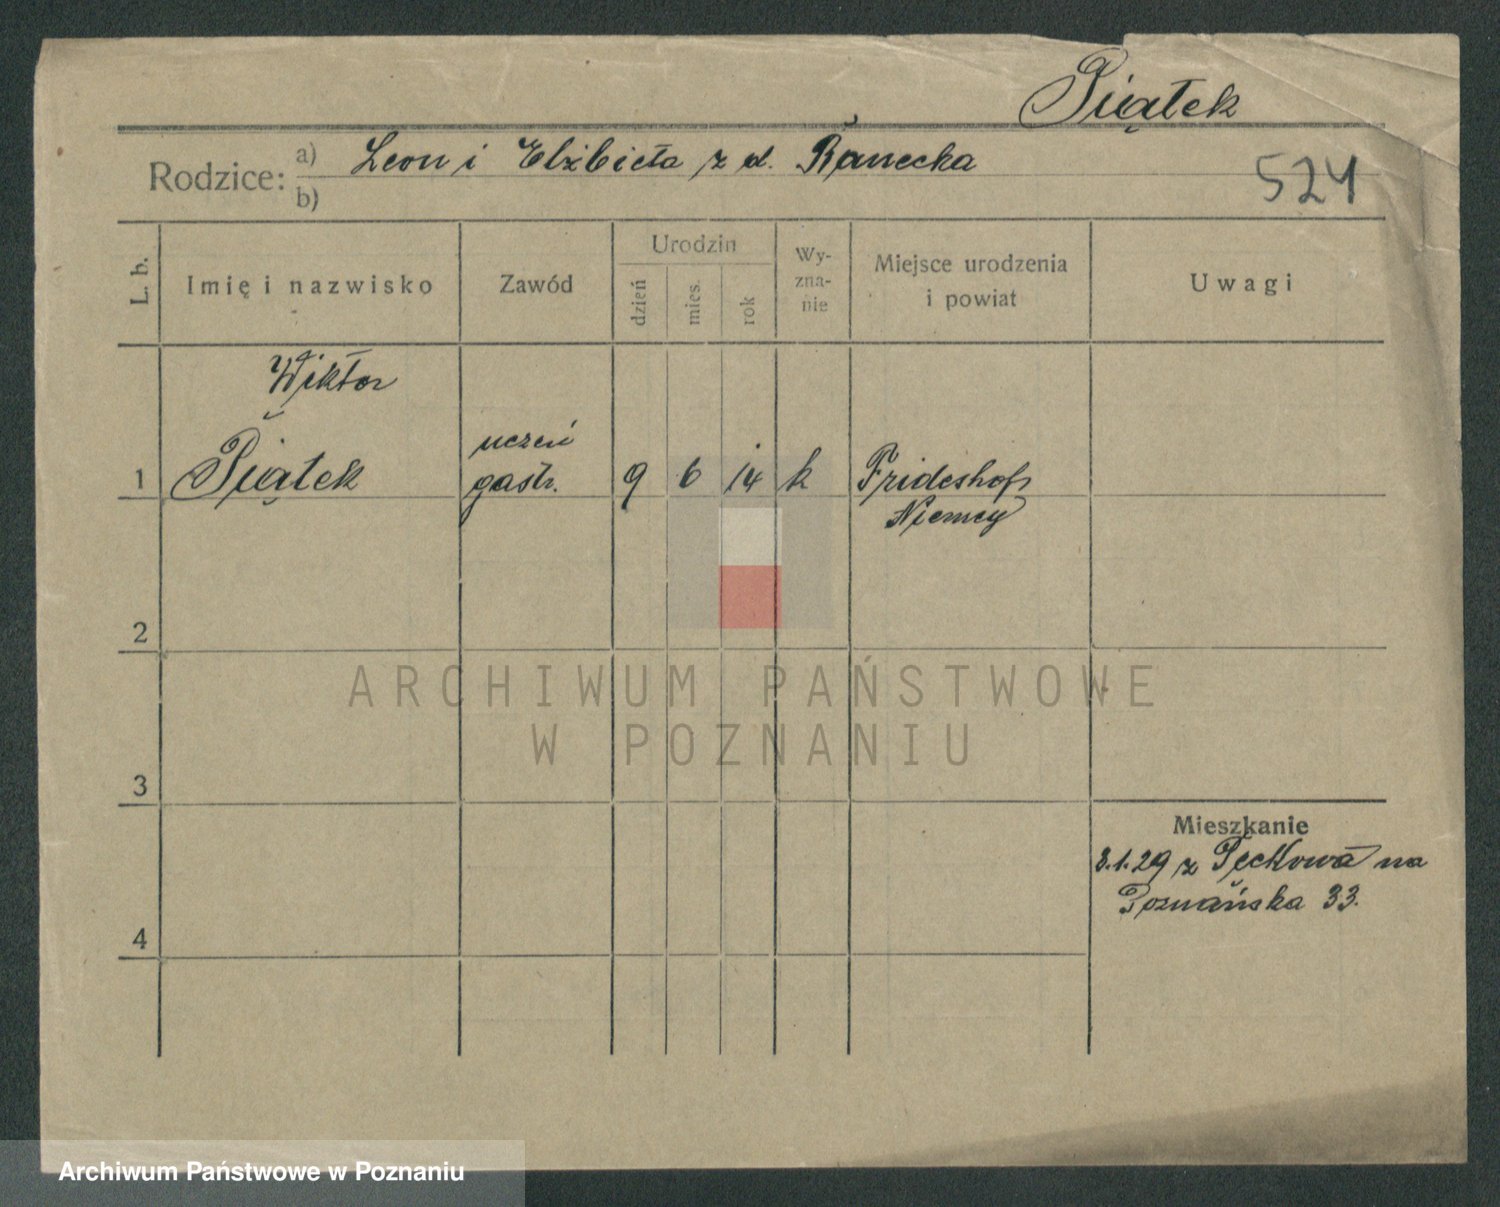 Piątek
Rodzice: a) Leon i Elżbieta z d. Banecka
b)
524
L. b.
Imię i nazwisko
Zawód
Urodzin
dzień
mies.
rok
Wy-
zna-
nie
Miejsce urodzenia
i powiat
Uwagi
Wiktor
1 Piątek
uczeń
gastr.
9 6 14 k
Frideshof
Niemcy
2
3
4
Mieszkanie
3.1.29 z na
Poznańska 33.
ARCHIWUM PAŃSTWOWE
W POZNANIU
Archiwum Państwowe w Poznaniu